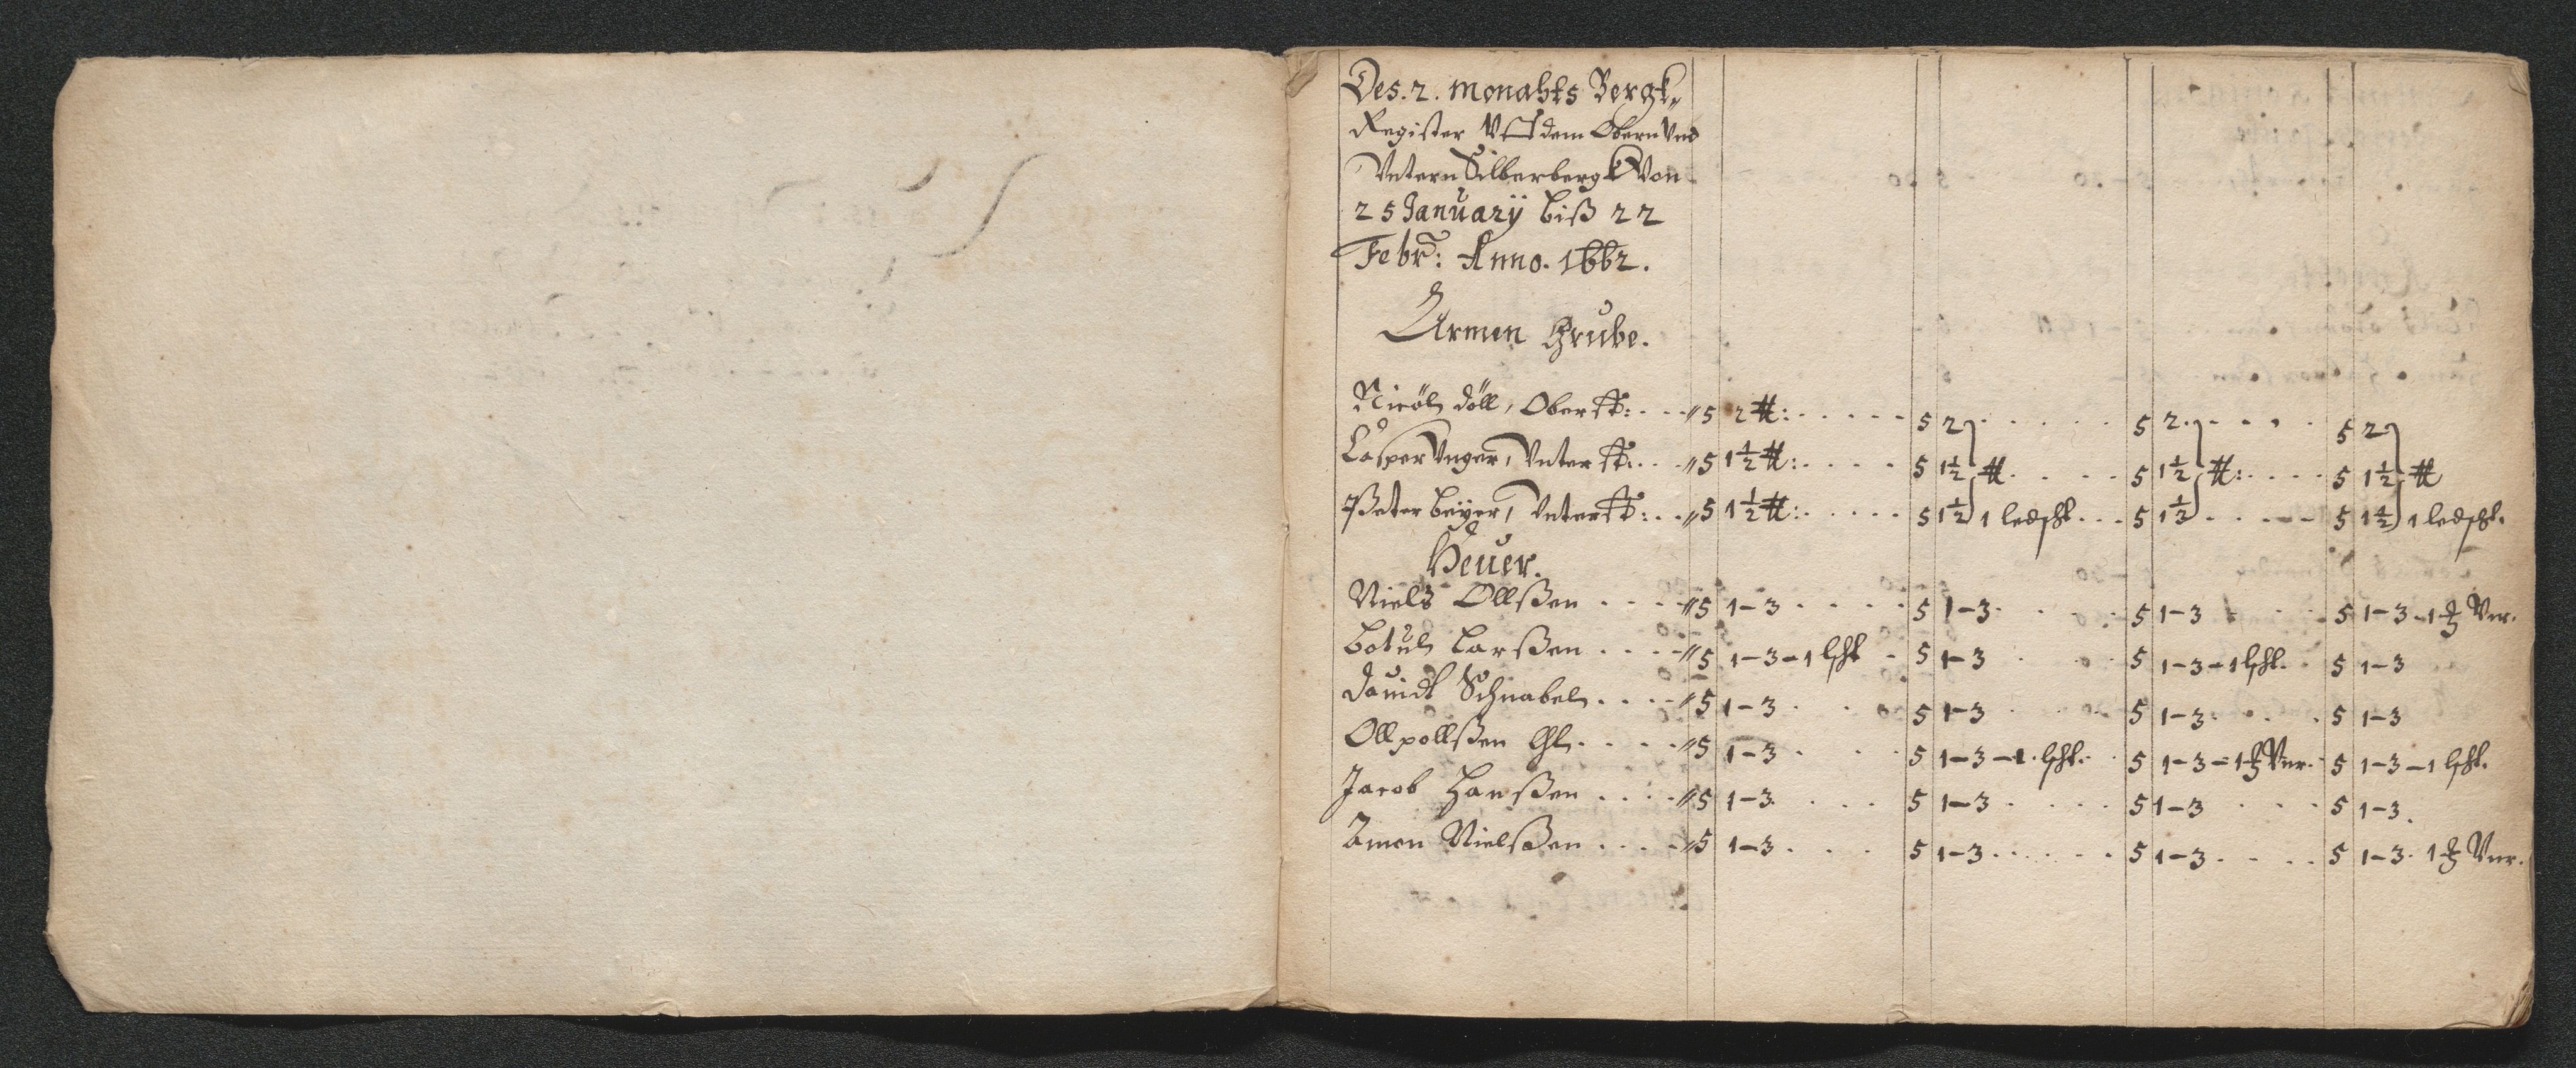 Des. 2. Monahts Bergk„
Register Vff dem Obern Vnd
Vntern Silberbergk Von
25 January biß 22
Febr: Anno. 1662.
Armen Grube.
Nicöl Döll, Ober st: . . . // 5 2 #: . . . . . 5 2 . . . . . 5 2 . . . . 5 2
Casper Vnger, Vnter st: . . . // 5 1½ #: . . . . 5 1½ # . . . . 5 1½ #: . . . . 5 1½ #
Peter Beÿer, Vnter st: . . // 5 1½ #: . . . . . 5 1½ 1 ledscht . . . 5 1½ . . . . 5 1½ 1 ledscht.
Heuer.
Niels Ollßen . . . . // 5 1-3 . . . . 5 1-3 . . . 5 1-3 . . 5 1-3-1 Vnr.
Botul Larßen . . . . // 5 1-3-1 lscht - 5 1-3 . . 5 1-3-1 lscht. . 5 1-3
Dauidt Schnabel . . . . // 5 1-3 . . 5 1-3 . . . 5 1-3 . . . . 5 1-3
Oll pollßen . . . . // 5 1-3 . . . 5 1-3-1 lscht. . 5 1-3-1 Vnr. 5 1-3-1 lscht.
Jacob Hanßen . . . . // 5 1-3 . . . 5 1-3 . . . . 5 1-3 . . . 5 1-3.
Amon Nielßen . . . . // 5 1-3 . . . 5 1-3 . . . . . 5 1-3 . . . . 5 1-3. 1 Vnr.